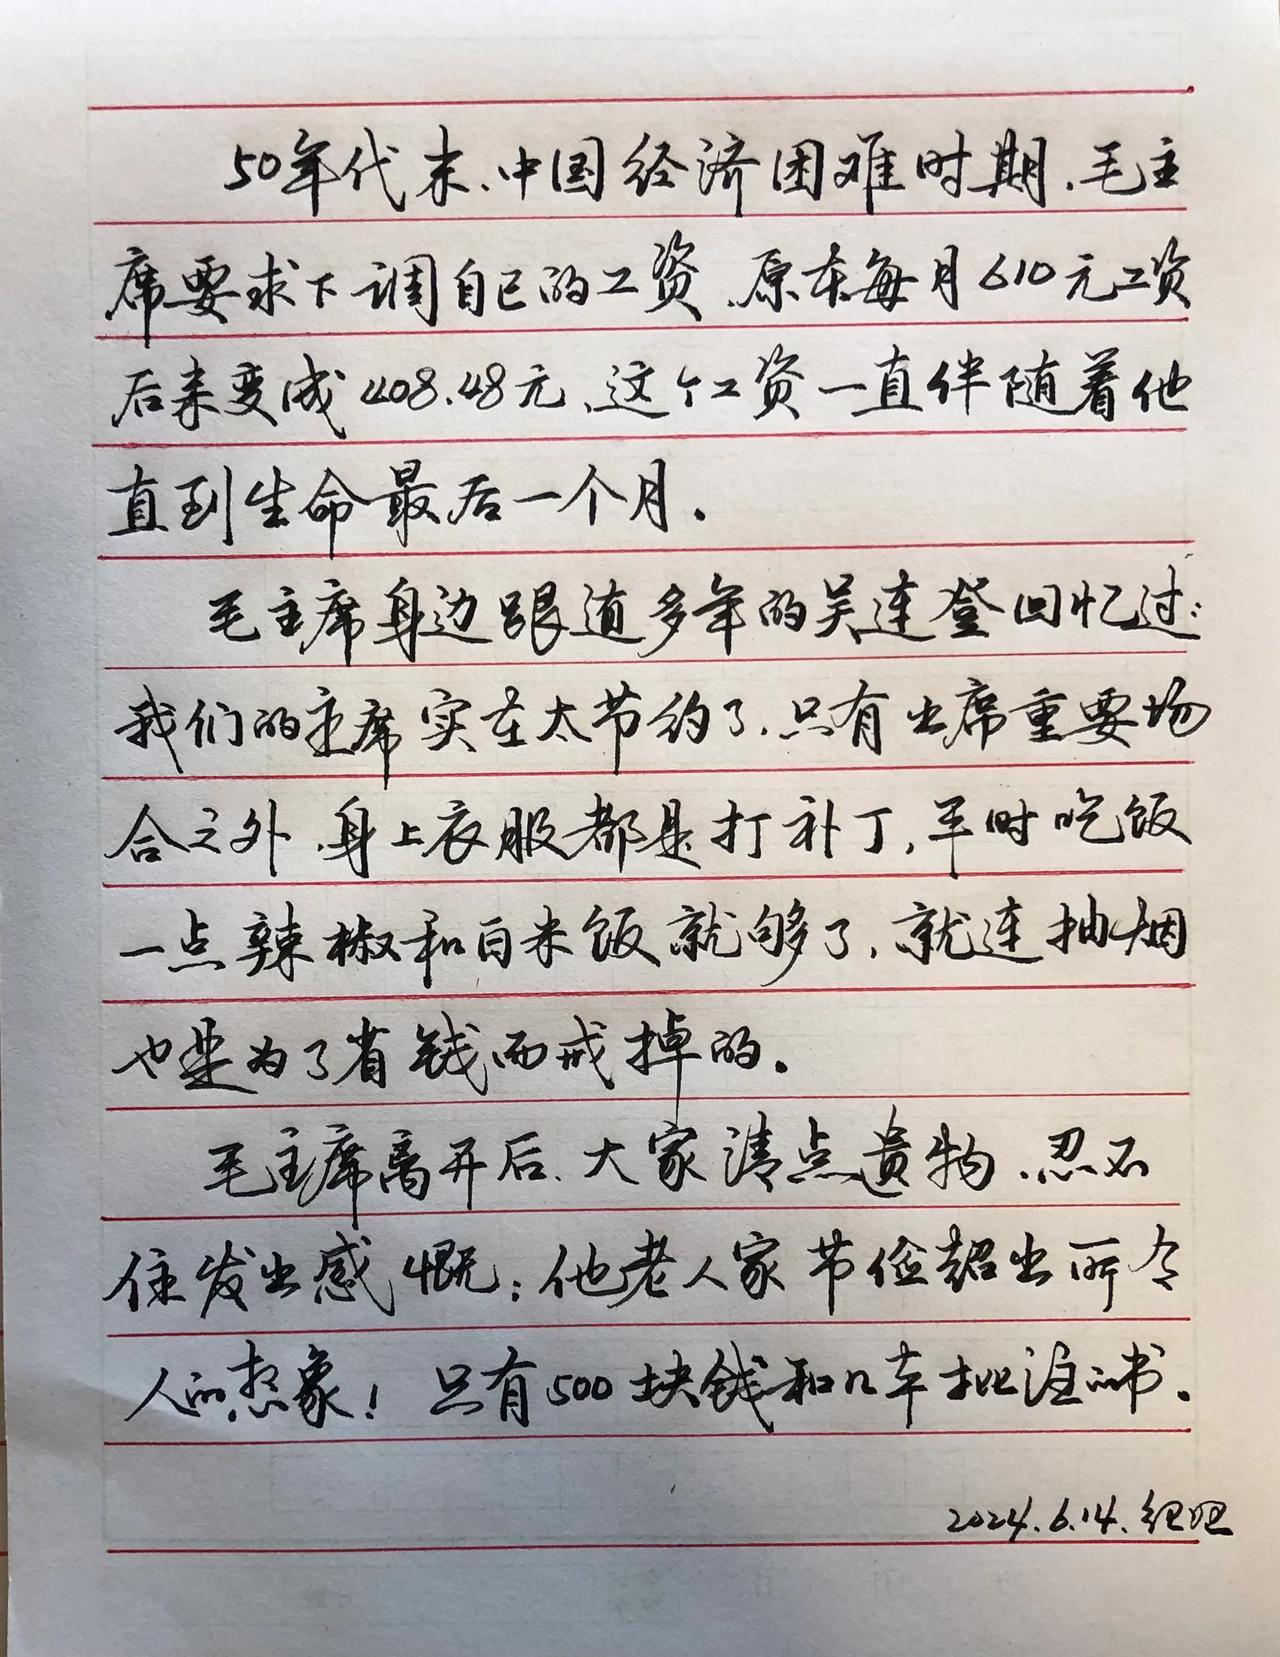 50年代末、中国经济困难时期、毛主
席要求下调自己的工资、原本每月610元工资
后来变成408.48元、这个工资一直伴随着他
直到生命最后一个月。
毛主席身边跟随多年的吴连登回忆过:
我们的主席实在太节约了、只有出席重要场
合之外、身上衣服都是打补丁，平时吃饭
一点辣椒和白米饭就够了，就连抽烟
也是为了省钱而戒掉的。
毛主席离开后、大家清点遗物、忍不
住发出感慨：他老人家节俭超出所令
人的想象！只有500块钱和几本批注的书。
2024.6.14.